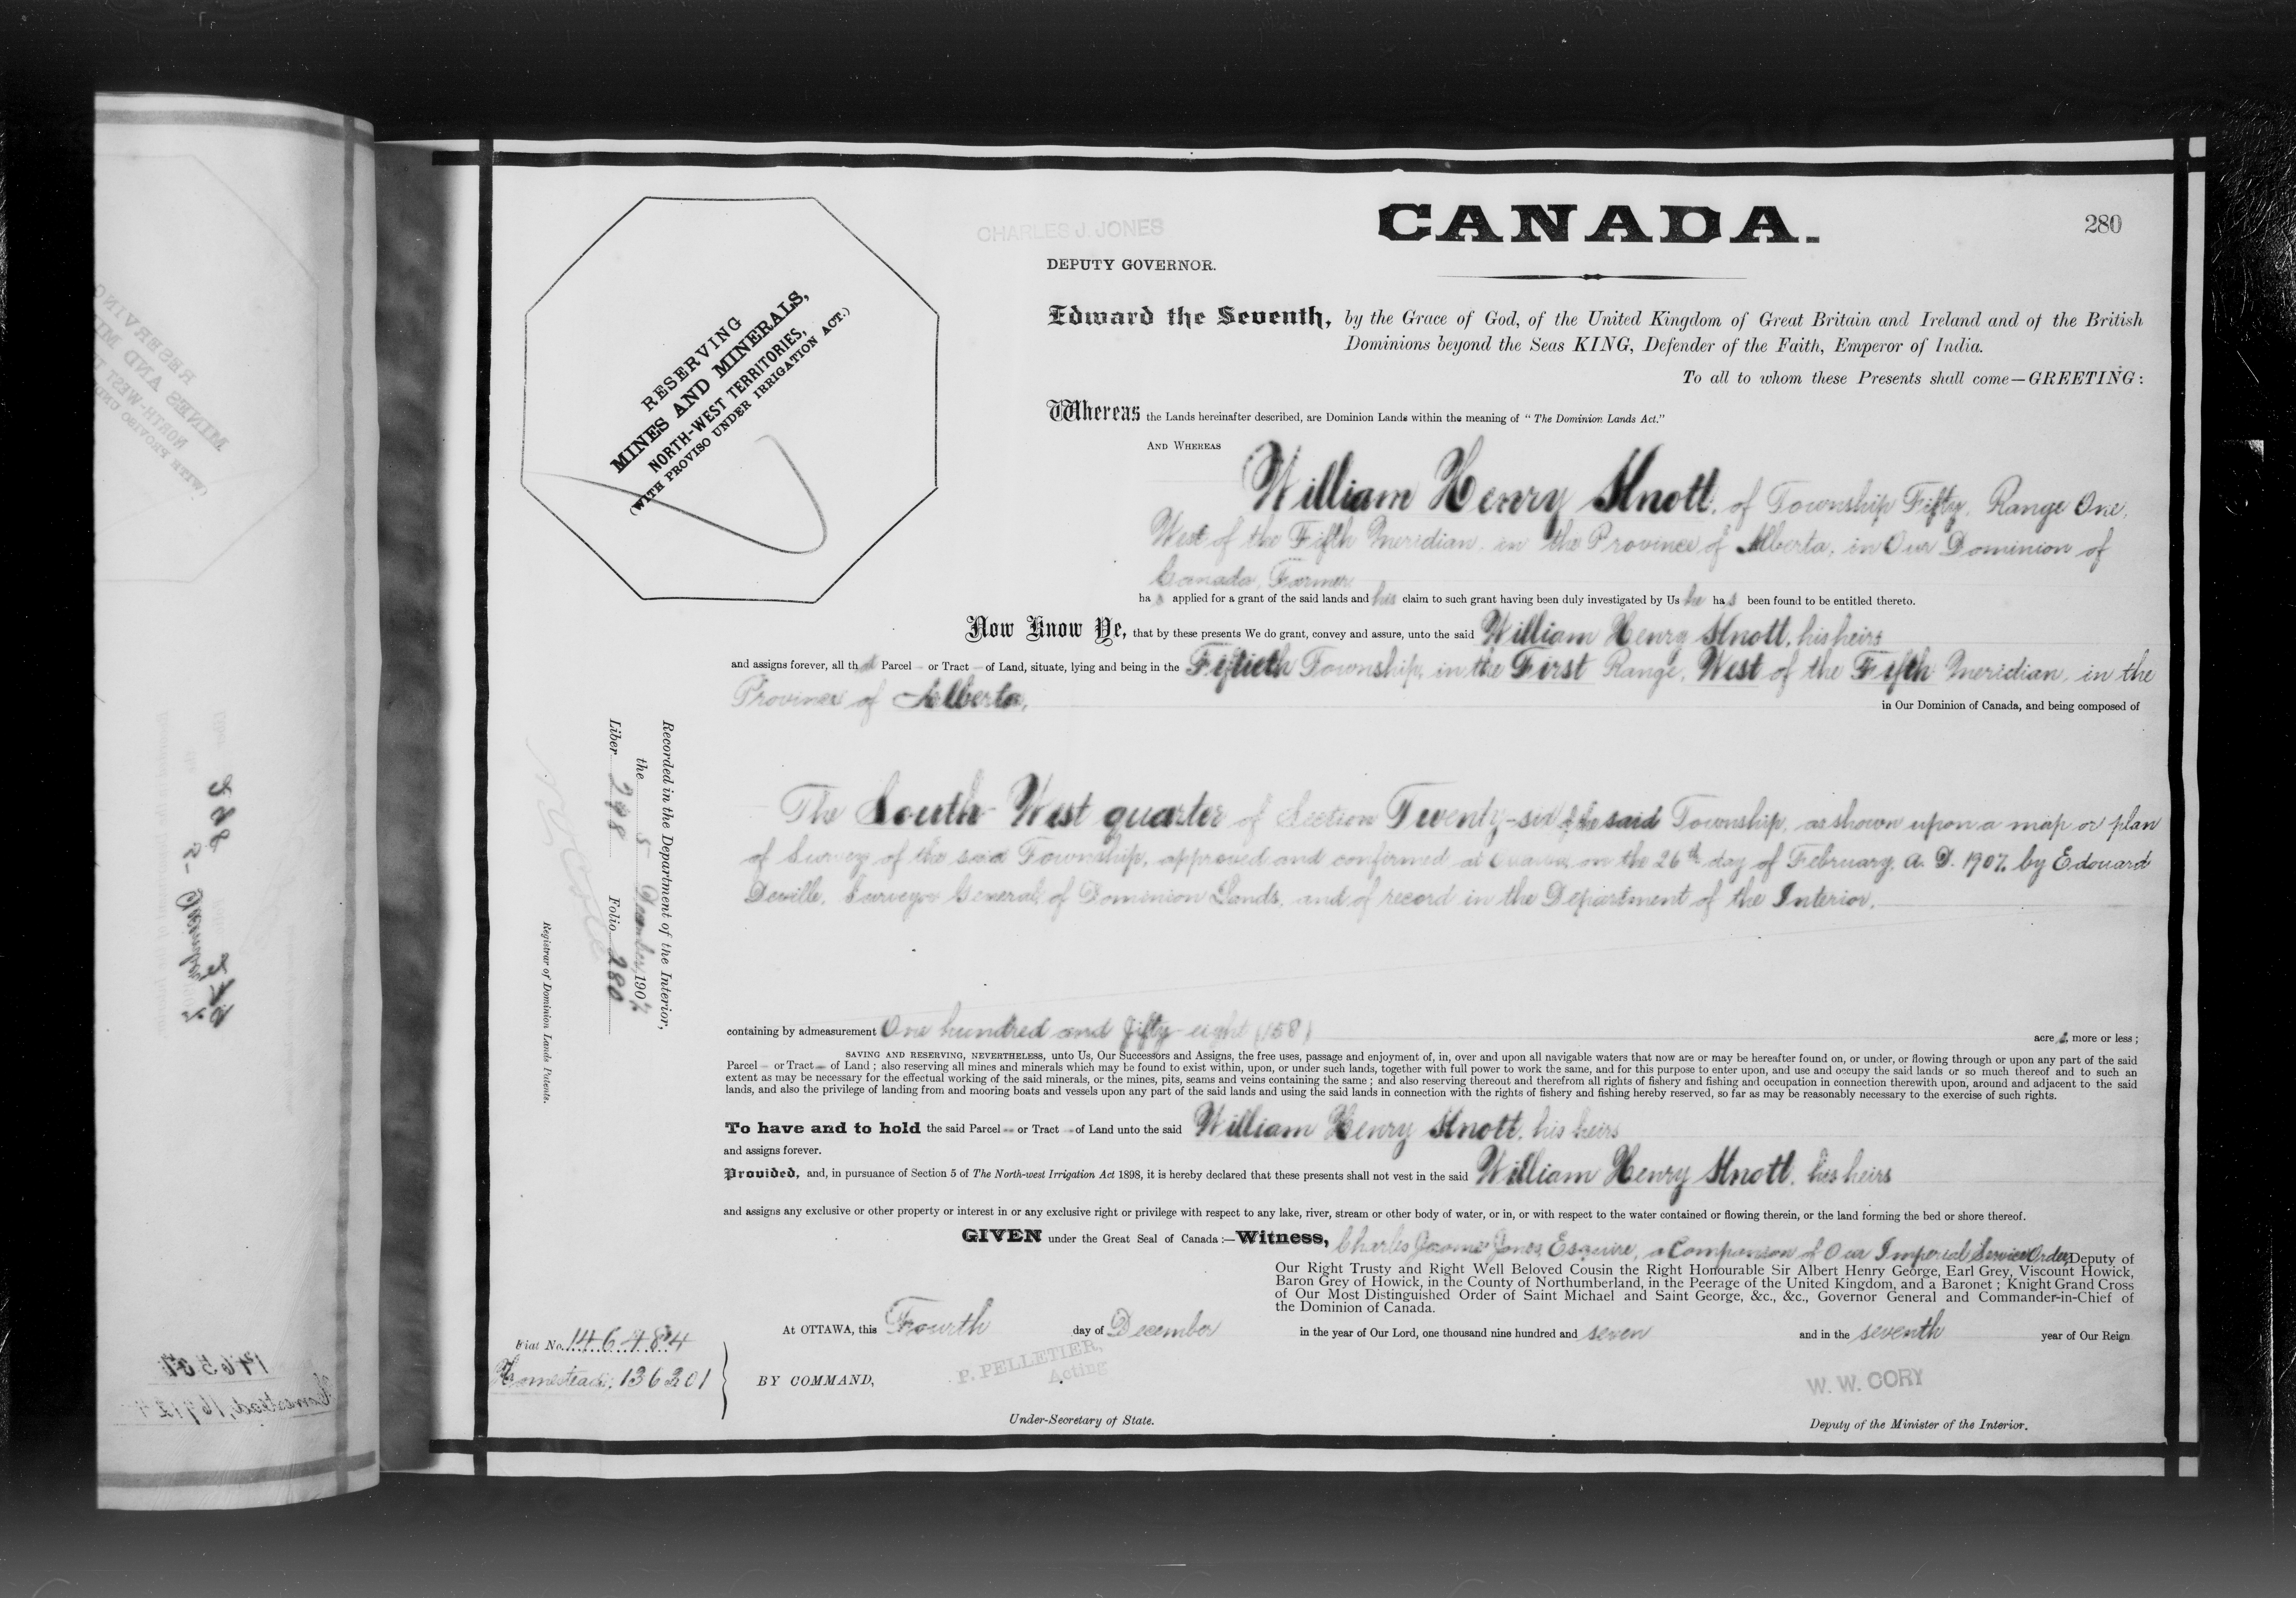 CHARLES J. JONES
CANADA.
280
DEPUTY GOVERNOR.
RESERVING
MINES AND MINERALS,
NORTH-WEST TERRITORIES,
(WITH PROVISO UNDER IRRIGATION ACT.)
Edward the Seventh, by the Grace of God, of the United Kingdom of Great Britain and Ireland and of the British
Dominions beyond the Seas KING, Defender of the Faith, Emperor of India.
To all to whom these Presents shall come—GREETING:
Whereas the Lands hereinafter described, are Dominion Lands within the meaning of "The Dominion Lands Act."
AND WHEREAS
William Henry Knott, of Township Fifty, Range One,
West of the Fifth Meridian, in the Province of Alberta, in Our Dominion of
Canada, Farmer
has applied for a grant of the said lands and his claim to such grant having been duly investigated by Us he has been found to be entitled thereto.
Now Know Ye, that by these presents We do grant, convey and assure, unto the said William Henry Knott, his heirs
and assigns forever, all that Parcel - or Tract - of Land, situate, lying and being in the Fiftieth Township, in the First Range, West of the Fifth Meridian, in the
Province of Alberta,
in Our Dominion of Canada, and being composed of
The South-West quarter of Section Twenty-six of the said Township, as shown upon a map or plan
of Survey of the said Township, approved and confirmed at Ottawa, on the 26th day of February, A. D. 1907, by Edouard
Deville, Surveyor General of Dominion Lands, and of record in the Department of the Interior.
Recorded in the Department of the Interior,
the 5 December, 1907
Liber 248 Folio 280
Registrar of Dominion Lands Patents.
containing by admeasurement One hundred and fifty-eight (158)
acres, more or less;
SAVING AND RESERVING, NEVERTHELESS, unto Us, Our Successors and Assigns, the free uses, passage and enjoyment of, in, over and upon all navigable waters that now are or may be hereafter found on, or under, or flowing through or upon any part of the said
Parcel - or Tract - of Land; also reserving all mines and minerals which may be found to exist within, upon, or under such lands, together with full power to work the same, and for this purpose to enter upon, and use and occupy the said lands or so much thereof and to such an
extent as may be necessary for the effectual working of the said minerals, or the mines, pits, seams and veins containing the same; and also reserving thereout and therefrom all rights of fishery and fishing and occupation in connection therewith upon, around and adjacent to the said
lands, and also the privilege of landing from and mooring boats and vessels upon any part of the said lands and using the said lands in connection with the rights of fishery and fishing hereby reserved, so far as may be reasonably necessary to the exercise of such rights.
To have and to hold the said Parcel - or Tract - of Land unto the said William Henry Knott, his heirs
and assigns forever.
Provided, and, in pursuance of Section 5 of The North-west Irrigation Act 1898, it is hereby declared that these presents shall not vest in the said William Henry Knott, his heirs
and assigns any exclusive or other property or interest in or any exclusive right or privilege with respect to any lake, river, stream or other body of water, or in, or with respect to the water contained or flowing therein, or the land forming the bed or shore thereof.
GIVEN under the Great Seal of Canada:—Witness, Charles Jerome Jones, Esquire, a Companion of Our Imperial Service Order, Deputy of
Our Right Trusty and Right Well Beloved Cousin the Right Honourable Sir Albert Henry George, Earl Grey, Viscount Howick,
Baron Grey of Howick, in the County of Northumberland, in the Peerage of the United Kingdom, and a Baronet; Knight Grand Cross
of Our Most Distinguished Order of Saint Michael and Saint George, &c., &c., Governor General and Commander-in-Chief of
the Dominion of Canada.
At OTTAWA, this Fourth day of December in the year of Our Lord, one thousand nine hundred and seven and in the seventh year of Our Reign
Fiat No. 146484
Homestead: 136201
BY COMMAND,
P. PELLETIER,
Acting
Under-Secretary of State.
W. W. CORY
Deputy of the Minister of the Interior.